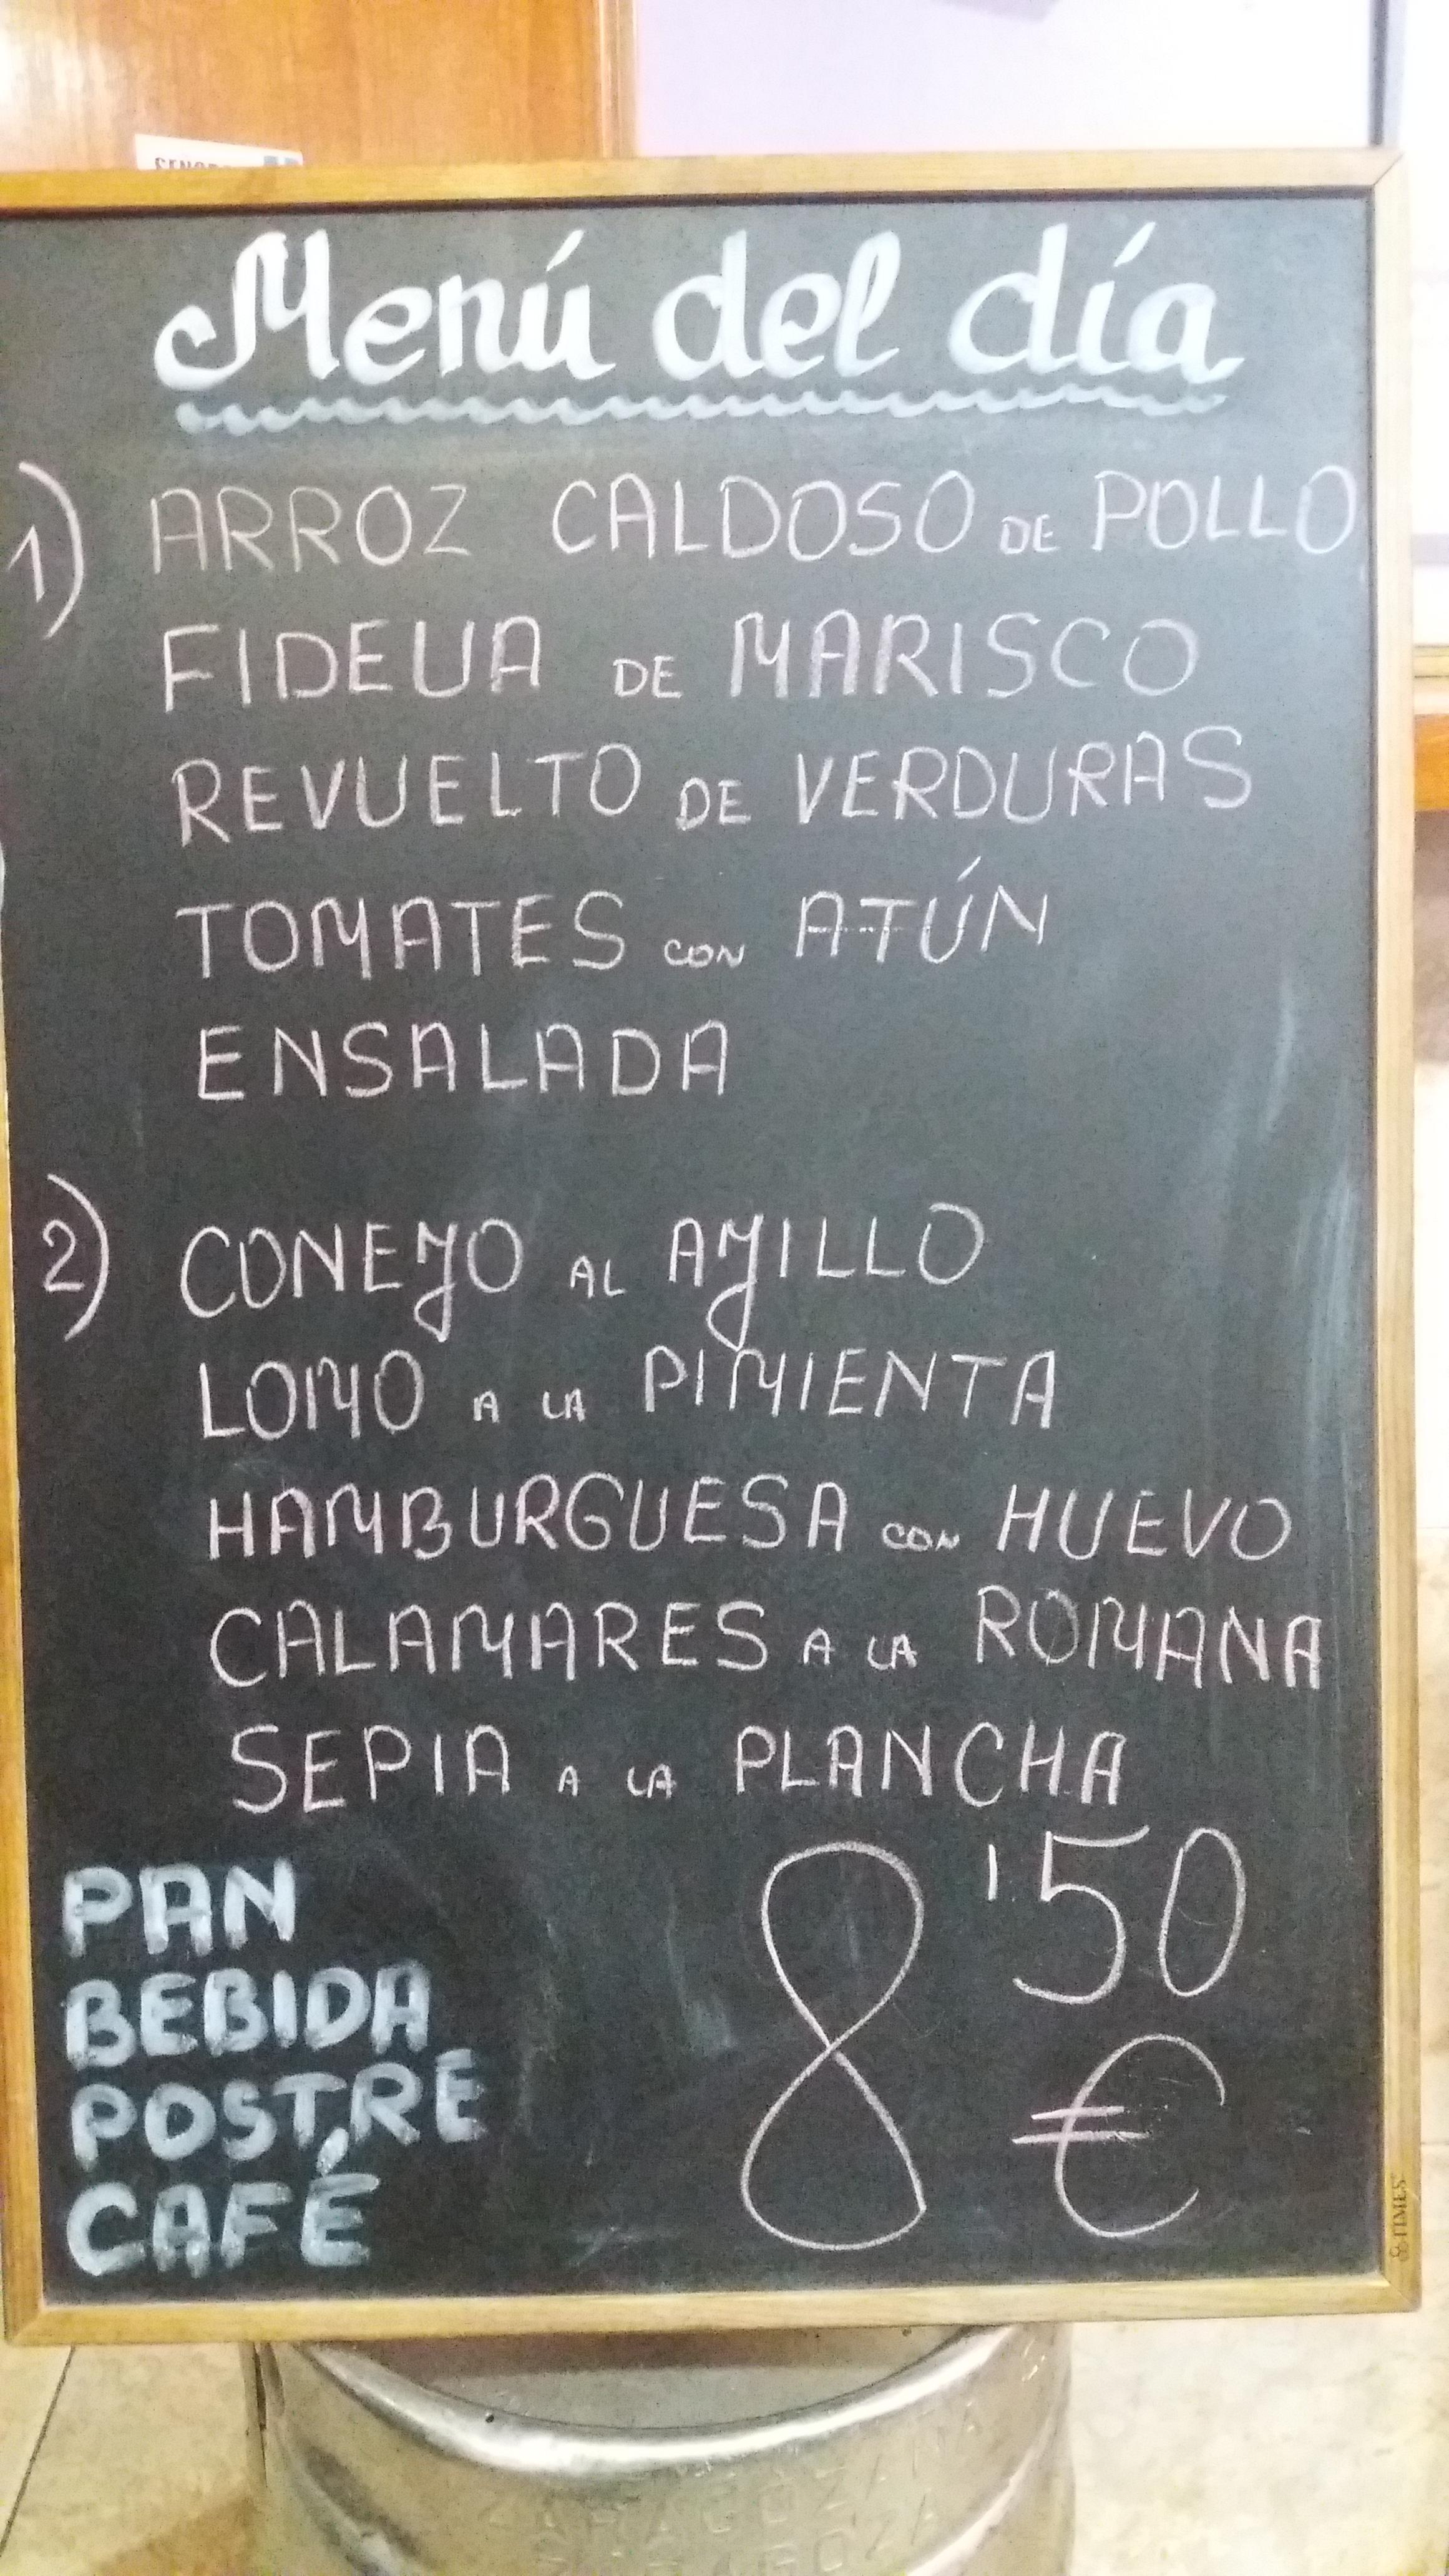 Menú del día
1) ARROZ CALDOSO DE POLLO
FIDEUA DE MARISCO
REVUELTO DE VERDURAS
TOMATES CON ATÚN
ENSALADA
2) CONEJO AL AJILLO
LOMO A LA PIMIENTA
HAMBURGUESA CON HUEVO
CALAMARES A LA ROMANA
SEPIA A LA PLANCHA
PAN
BEBIDA
POSTRE
CAFÉ
8'50
€
TIMES
ZARAGOZA